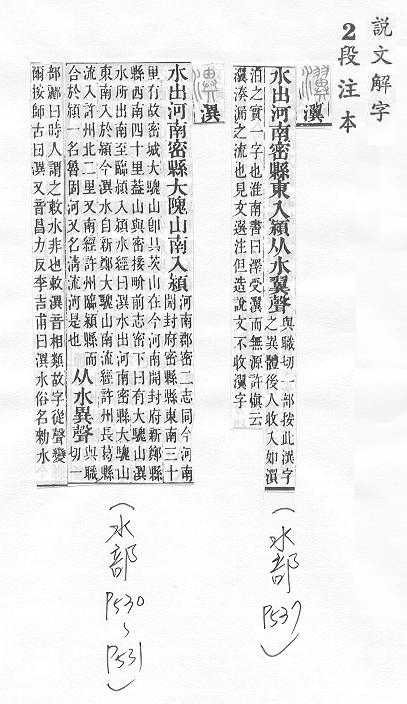 說文解字
2段注本
瀷
水出河南密縣東入潁从水翼聲
與職切一部按此潩字
之異體後人收入如
涓之實一字也淮南書曰潭受瀷而無源許愼云
瀷湊漏之流也見文選注但造說文不收瀷字
(水部 P537)
潩
水出河南密縣大隗山南入潁
河南郡密二志同今河南
開封府密縣縣東南三十
里有故密城大騩山卽具茨山在今河南開封府新鄭縣
縣西南四十里葢山與密接畍前志密下曰有大騩山潩
水所出南至臨潁入潁水經曰潩水出河南密縣大騩山
東南入於潁今潩水自新鄭大騩山南流經許州長葛縣
流入許州北二里又南經許州臨潁縣而
合於潁一名魯固河又名清流河是也
从水異聲
與職
切一
部酈曰時人謂之敕水非也敕潩音相類故字從聲變
爾按師古曰潩又音昌力反李吉甫曰潩水俗名勑水
(水部 P530~P531)